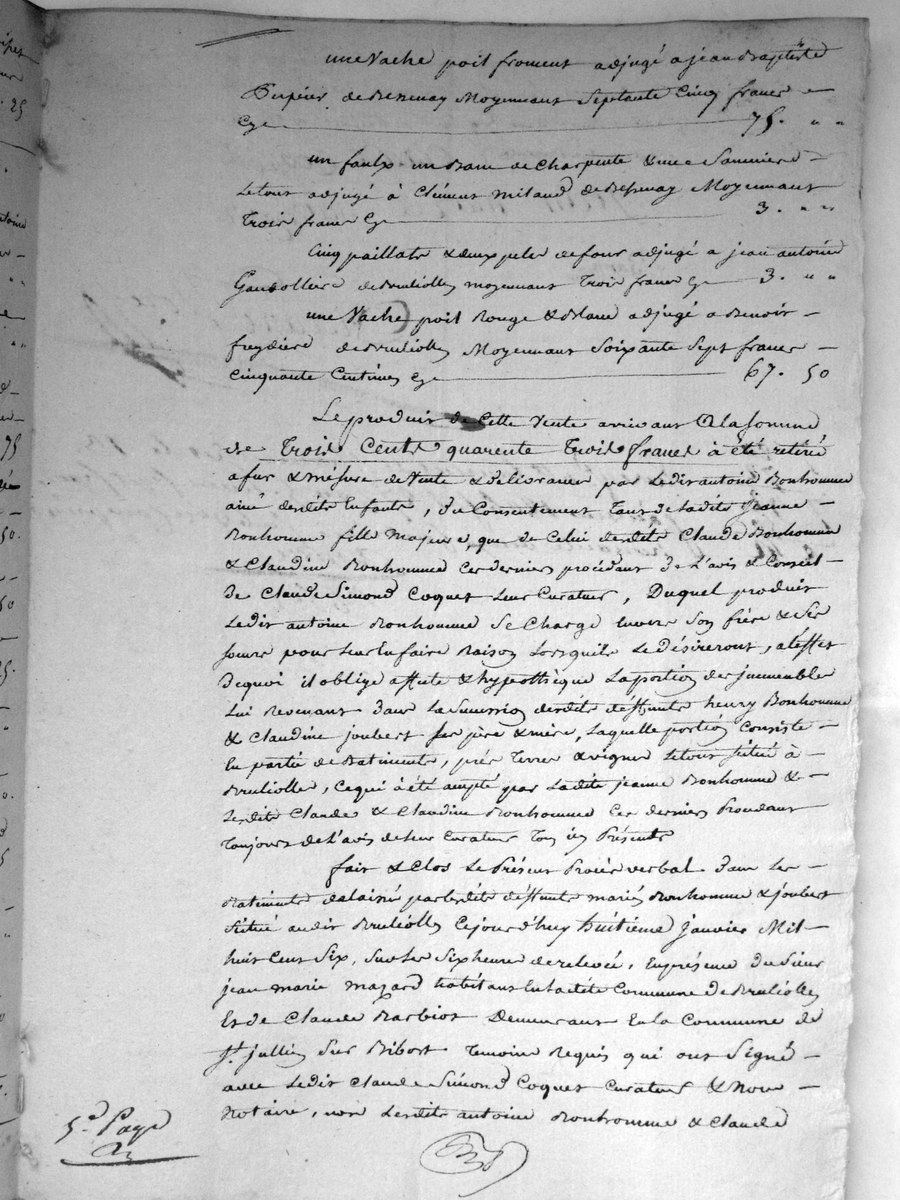 une Vache poil froment adjugé a jean Baptiste
Pupier de Bessenay Moyennant Septante Cinq francs
Cy 75. " "
un faulx un Banc de Charpente & une
Le tout adjugé à Clément milaud de Bessenay Moyennant
Trois francs Cy 3. " "
Cinq paillats & deux peles de four adjugé a jean antoine
de Brulliolles moyennant Trois francs Cy 3. " "
une Vache poil Rouge & Blanc adjugé a Benoit
freydiere de Brulliolles Moyennant Soixante Sept francs
Cinquante Centimes Cy 67. 50
Le produit de Cette Vente arrivant A la Somme
de Trois Cents quarente Trois francs à été retiré
a fur & mésure de Vente & délivrance par Ledit antoine Bonhomme
ainé desdits Enfants, du Consentement Tant de Ladite jeanne
Bonhomme fille Majeure, que de Celui desdits Claude Bonhomme
& Claudine Bonhomme Ces derniers procédant de L'avis & Conseil
de Claude Simond Coquet Leur Curateur, Duquel produit
Ledit antoine Bonhomme Se Charge Envers Son frère & Ses
Soeurs pour Leur En faire Raison Lorsquils Le désireront, a Leffet
dequoi il oblige affecte & hypothèque La portion des jmmeubles
Lui Revenant dans La Succession desdits déffunts henry Bonhomme
& Claudine joubert Ses père & mère, Laquelle portion Consiste
En partie de Batiments, prés Terres & vignes Le tout Situé à
Brulliolles, Ce qui à été accepté par Ladite jeanne Bonhomme &
Lesdits Claude & Claudine Bonhomme Ces derniers Procédant
Toujours de L'avis de Leur Curateur Tous ici Présents
fait & Clos Le Présent Procès verbal dans Les
Batiments délaissés par Lesdits déffunts mariés Bonhomme & joubert
Situé audit Brulliolles Cejourd'huy huitième Janvier Mil
huit Cent Six, Sur Les Six heures de relevée, En présence du Sieur
jean marie mazard habitant En Ladite Commune de Brulliolles
Et de Claude Barbiot Demeurant En La Commune de
St. jullien Sur Bibost Temoins Requis qui ont Signé
avec Ledit Claude Simond Coquet Curateur & Nous
Notaire, non Lesdits antoine Bonhomme & Claude
5e. Page